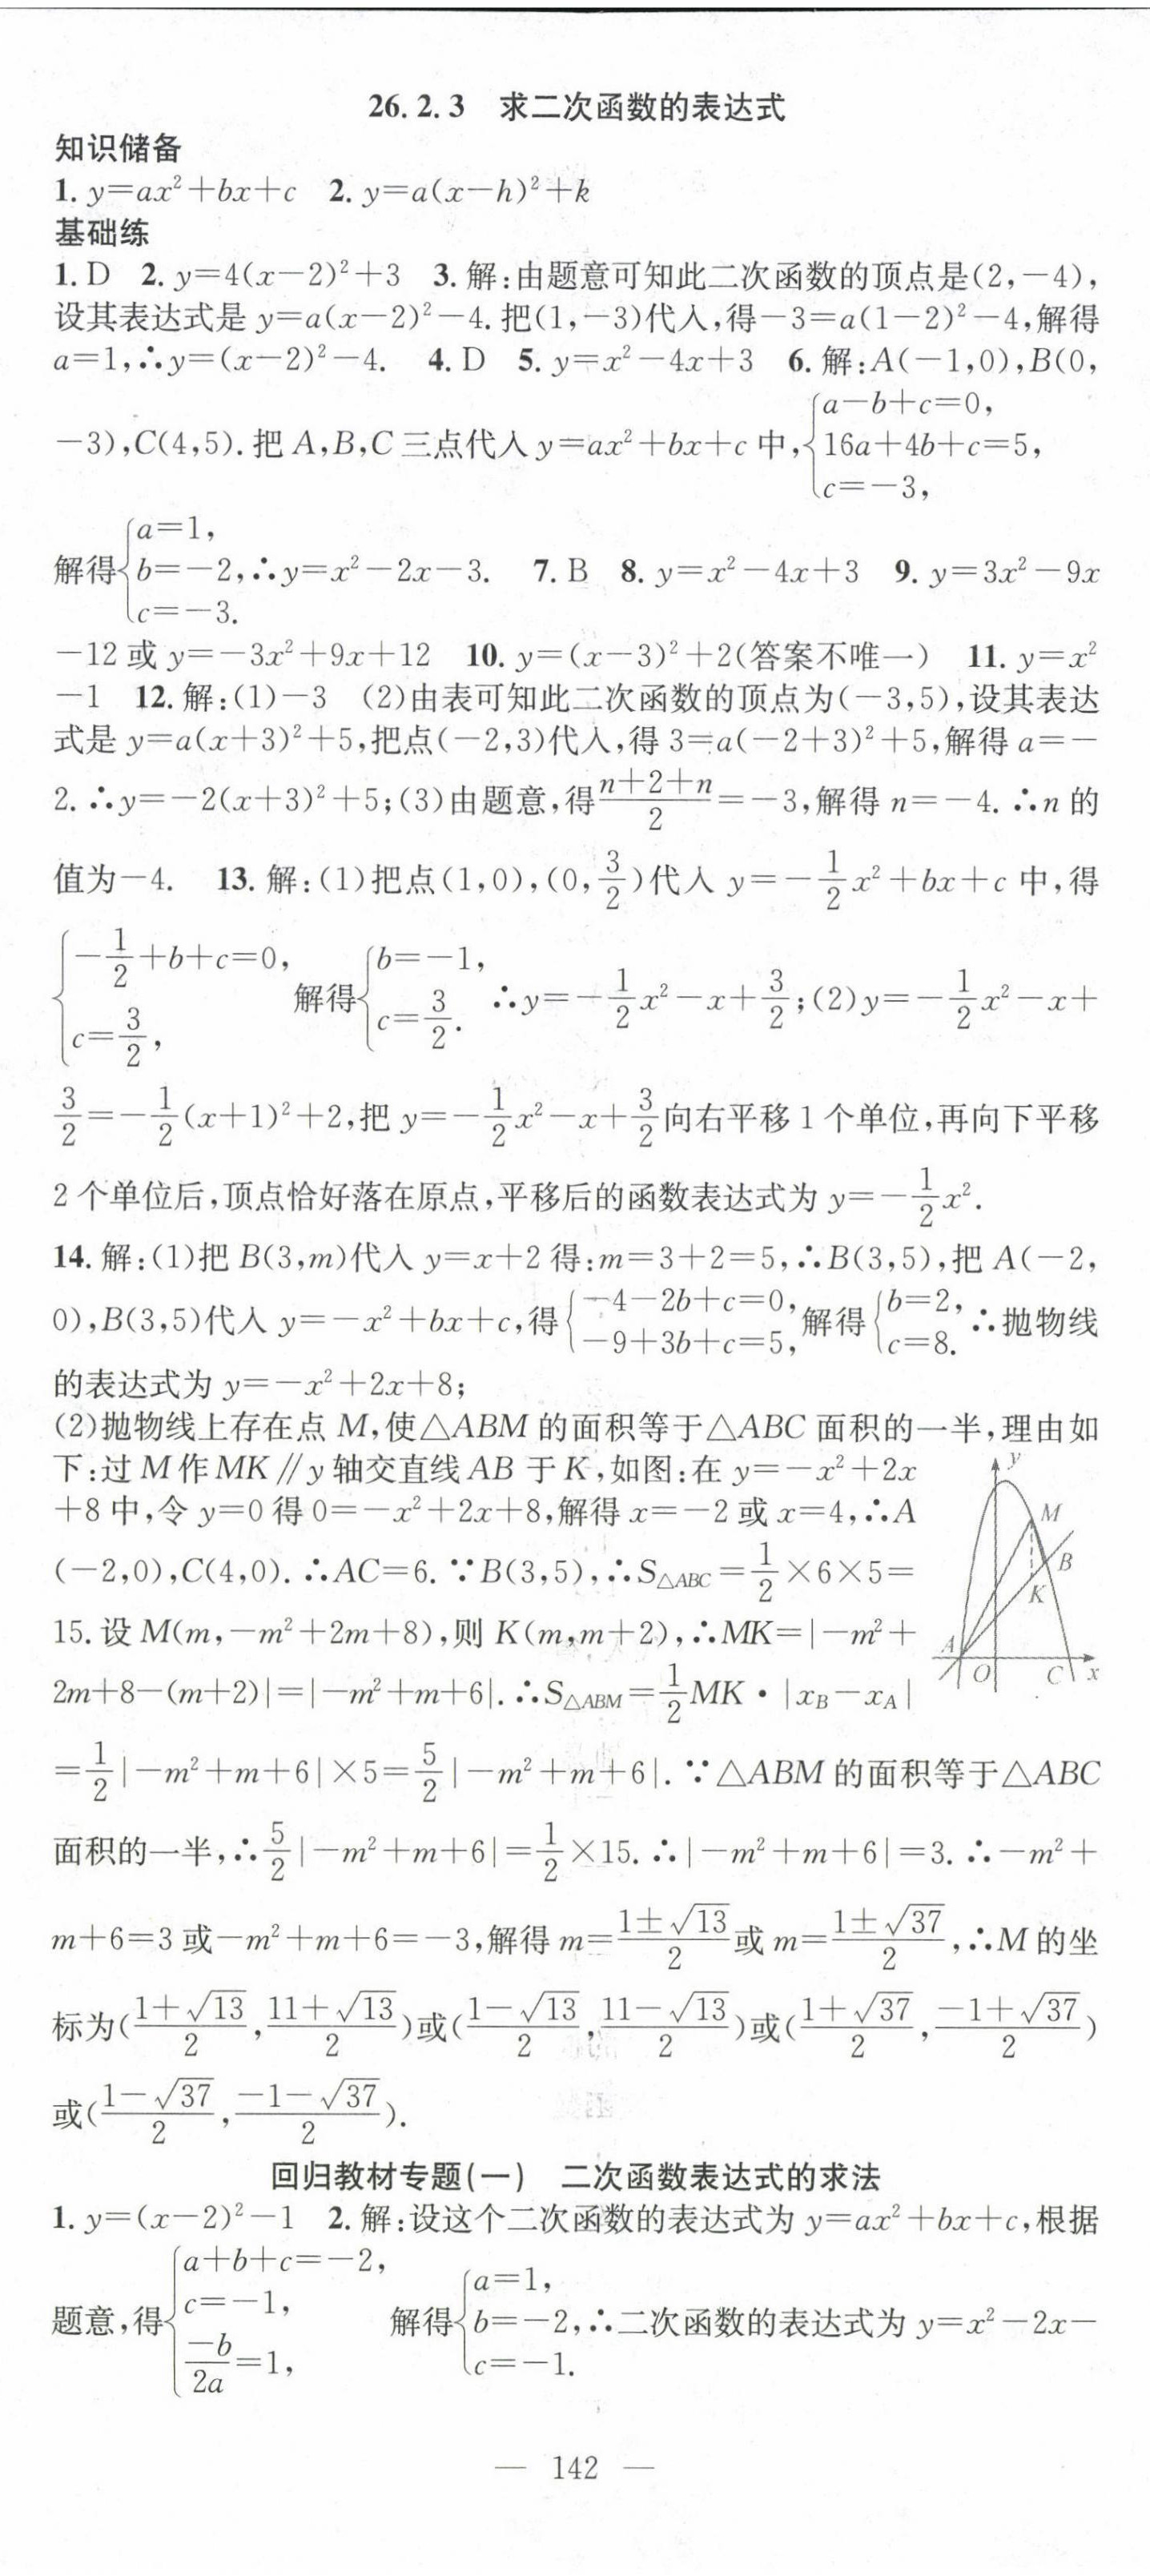 26.2.3 求二次函数的表达式
知识储备
1. y=ax²+bx+c 2. y=a(x-h)²+k
基础练
1. D 2. y=4(x-2)²+3 3. 解:由题意可知此二次函数的顶点是(2,-4),
设其表达式是 y=a(x-2)²-4. 把(1,-3)代入,得-3=a(1-2)²-4,解得
a=1,∴y=(x-2)²-4. 4. D 5. y=x²-4x+3 6. 解:A(-1,0),B(0,
-3),C(4,5). 把 A,B,C 三点代入 y=ax²+bx+c 中,{a-b+c=0, 16a+4b+c=5, c=-3,
解得{a=1, b=-2, c=-3. ∴y=x²-2x-3. 7. B 8. y=x²-4x+3 9. y=3x²-9x
-12 或 y=-3x²+9x+12 10. y=(x-3)²+2(答案不唯一) 11. y=x²
-1 12. 解:(1)-3 (2)由表可知此二次函数的顶点为(-3,5),设其表达
式是 y=a(x+3)²+5,把点(-2,3)代入,得 3=a(-2+3)²+5,解得 a=-
2. ∴y=-2(x+3)²+5;(3)由题意,得(n+2+n)/2=-3,解得 n=-4. ∴n 的
值为-4. 13. 解:(1)把点(1,0),(0,3/2)代入 y=-1/2x²+bx+c 中,得
{-1/2+b+c=0, c=3/2, 解得{b=-1, c=3/2. ∴y=-1/2x²-x+3/2;(2)y=-1/2x²-x+
3/2=-1/2(x+1)²+2,把 y=-1/2x²-x+3/2向右平移 1 个单位,再向下平移
2 个单位后,顶点恰好落在原点,平移后的函数表达式为 y=-1/2x².
14. 解:(1)把 B(3,m)代入 y=x+2 得:m=3+2=5,∴B(3,5),把 A(-2,
0),B(3,5)代入 y=-x²+bx+c,得{-4-2b+c=0, -9+3b+c=5, 解得{b=2, c=8. ∴抛物线
的表达式为 y=-x²+2x+8;
(2)抛物线上存在点 M,使△ABM 的面积等于△ABC 面积的一半,理由如
下:过 M 作 MK∥y 轴交直线 AB 于 K,如图:在 y=-x²+2x
+8 中,令 y=0 得 0=-x²+2x+8,解得 x=-2 或 x=4,∴A
(-2,0),C(4,0). ∴AC=6. ∵B(3,5),∴S△ABC=1/2×6×5=
15. 设 M(m,-m²+2m+8),则 K(m,m+2),∴MK=|-m²+
2m+8-(m+2)|=|-m²+m+6|. ∴S△ABM=1/2MK·|xB-xA|
y
M
B
K
A
O
C
x
=1/2|-m²+m+6|×5=5/2|-m²+m+6|. ∵△ABM 的面积等于△ABC
面积的一半,∴5/2|-m²+m+6|=1/2×15. ∴|-m²+m+6|=3. ∴-m²+
m+6=3 或-m²+m+6=-3,解得 m=(1±√13)/2或 m=(1±√37)/2,∴M 的坐
标为((1+√13)/2,(11+√13)/2)或((1-√13)/2,(11-√13)/2)或((1+√37)/2,(-1+√37)/2)
或((1-√37)/2,(-1-√37)/2).
回归教材专题(一) 二次函数表达式的求法
1. y=(x-2)²-1 2. 解:设这个二次函数的表达式为 y=ax²+bx+c,根据
题意,得{a+b+c=-2, c=-1, -b/2a=1, 解得{a=1, b=-2, c=-1. ∴二次函数的表达式为 y=x²-2x-
— 142 —